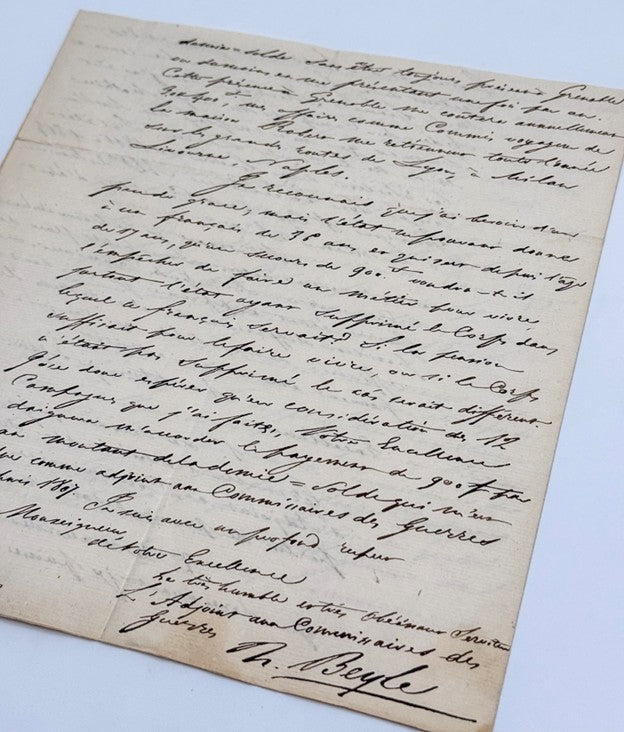 demie = solde sans être toujours présent à Grenoble
ou du moins en me présentant une fois par an.
Cette présence à Grenoble me coûtera annuellement
comme Commis voyageur de
la maison me retiennent toute l'année
sur les grandes routes de Lyon, à Milan
Livourne, Naples.
Je reconnais que j'ai besoin d'une
grace, mais l'état ne pouvant donner
à un français de 36 ans, et qui sert depuis l'age
de 17 ans, qu'un secours de 900 f voudra-t-il
l'empêcher de faire un métier pour vivre,
surtout l'état ayant supprimé le Corps dans
lequel ce français servait? Si la pension
suffisait pour le faire vivre, ou si le Corps
n'était pas supprimé le cas serait différent.
J'ose donc espérer qu'en considération des 12
Campagnes que j'ai faites, Votre Excellence
daignera m'accorder le payement de 900 f par
an montant de la demie = solde qui m'est
comme adjoint aux Commissaires des Guerres

Je suis avec un profond respect
Monseigneur
de Votre Excellence
Le très humble et très obéissant Serviteur
L'Adjoint aux Commissaires des
Guerres
Beyle